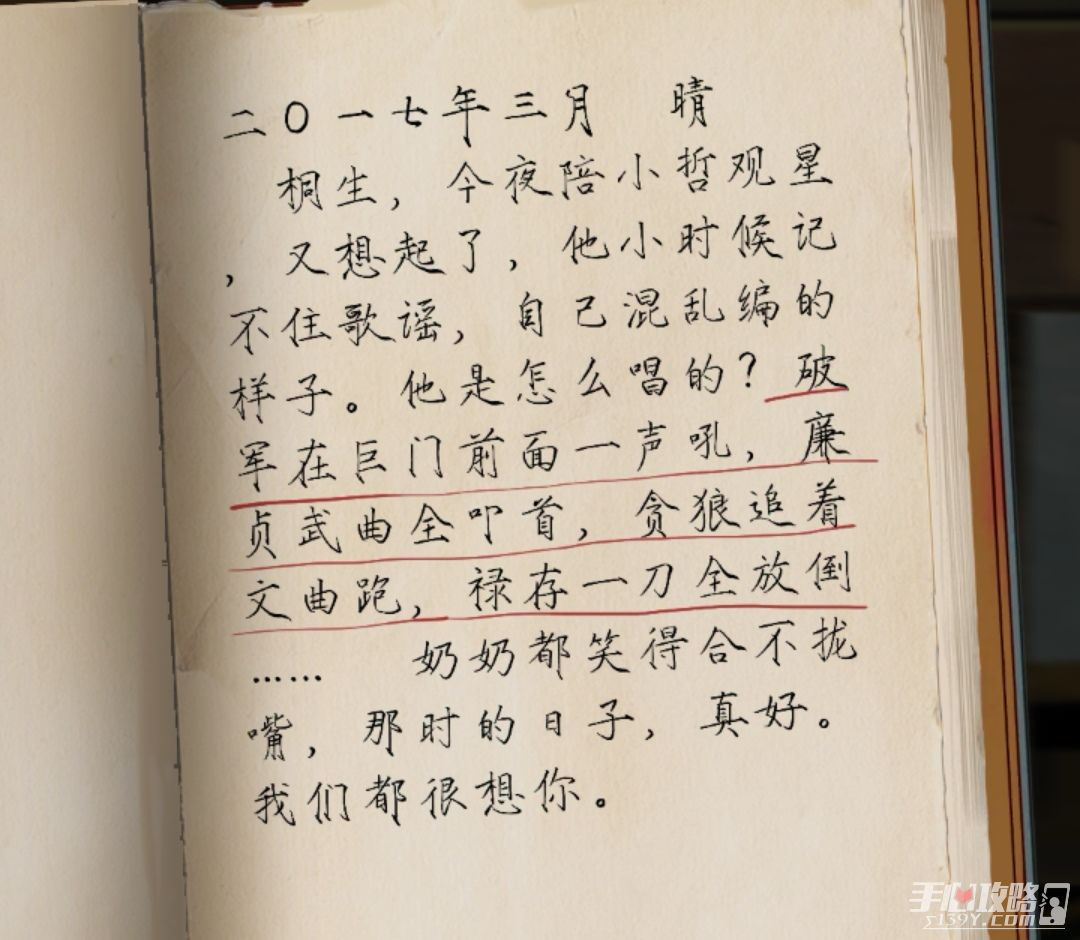 二〇一七年三月 晴
桐生，今夜陪小哲观星
，又想起了，他小时候记
不住歌谣，自己混乱编的
样子。他是怎么唱的？破
军在巨门前面一声吼，廉
贞武曲全叩首，贪狼追着
文曲跑，禄存一刀全放倒
…… 奶奶都笑得合不拢
嘴，那时的日子，真好。
我们都很想你。
手心攻略